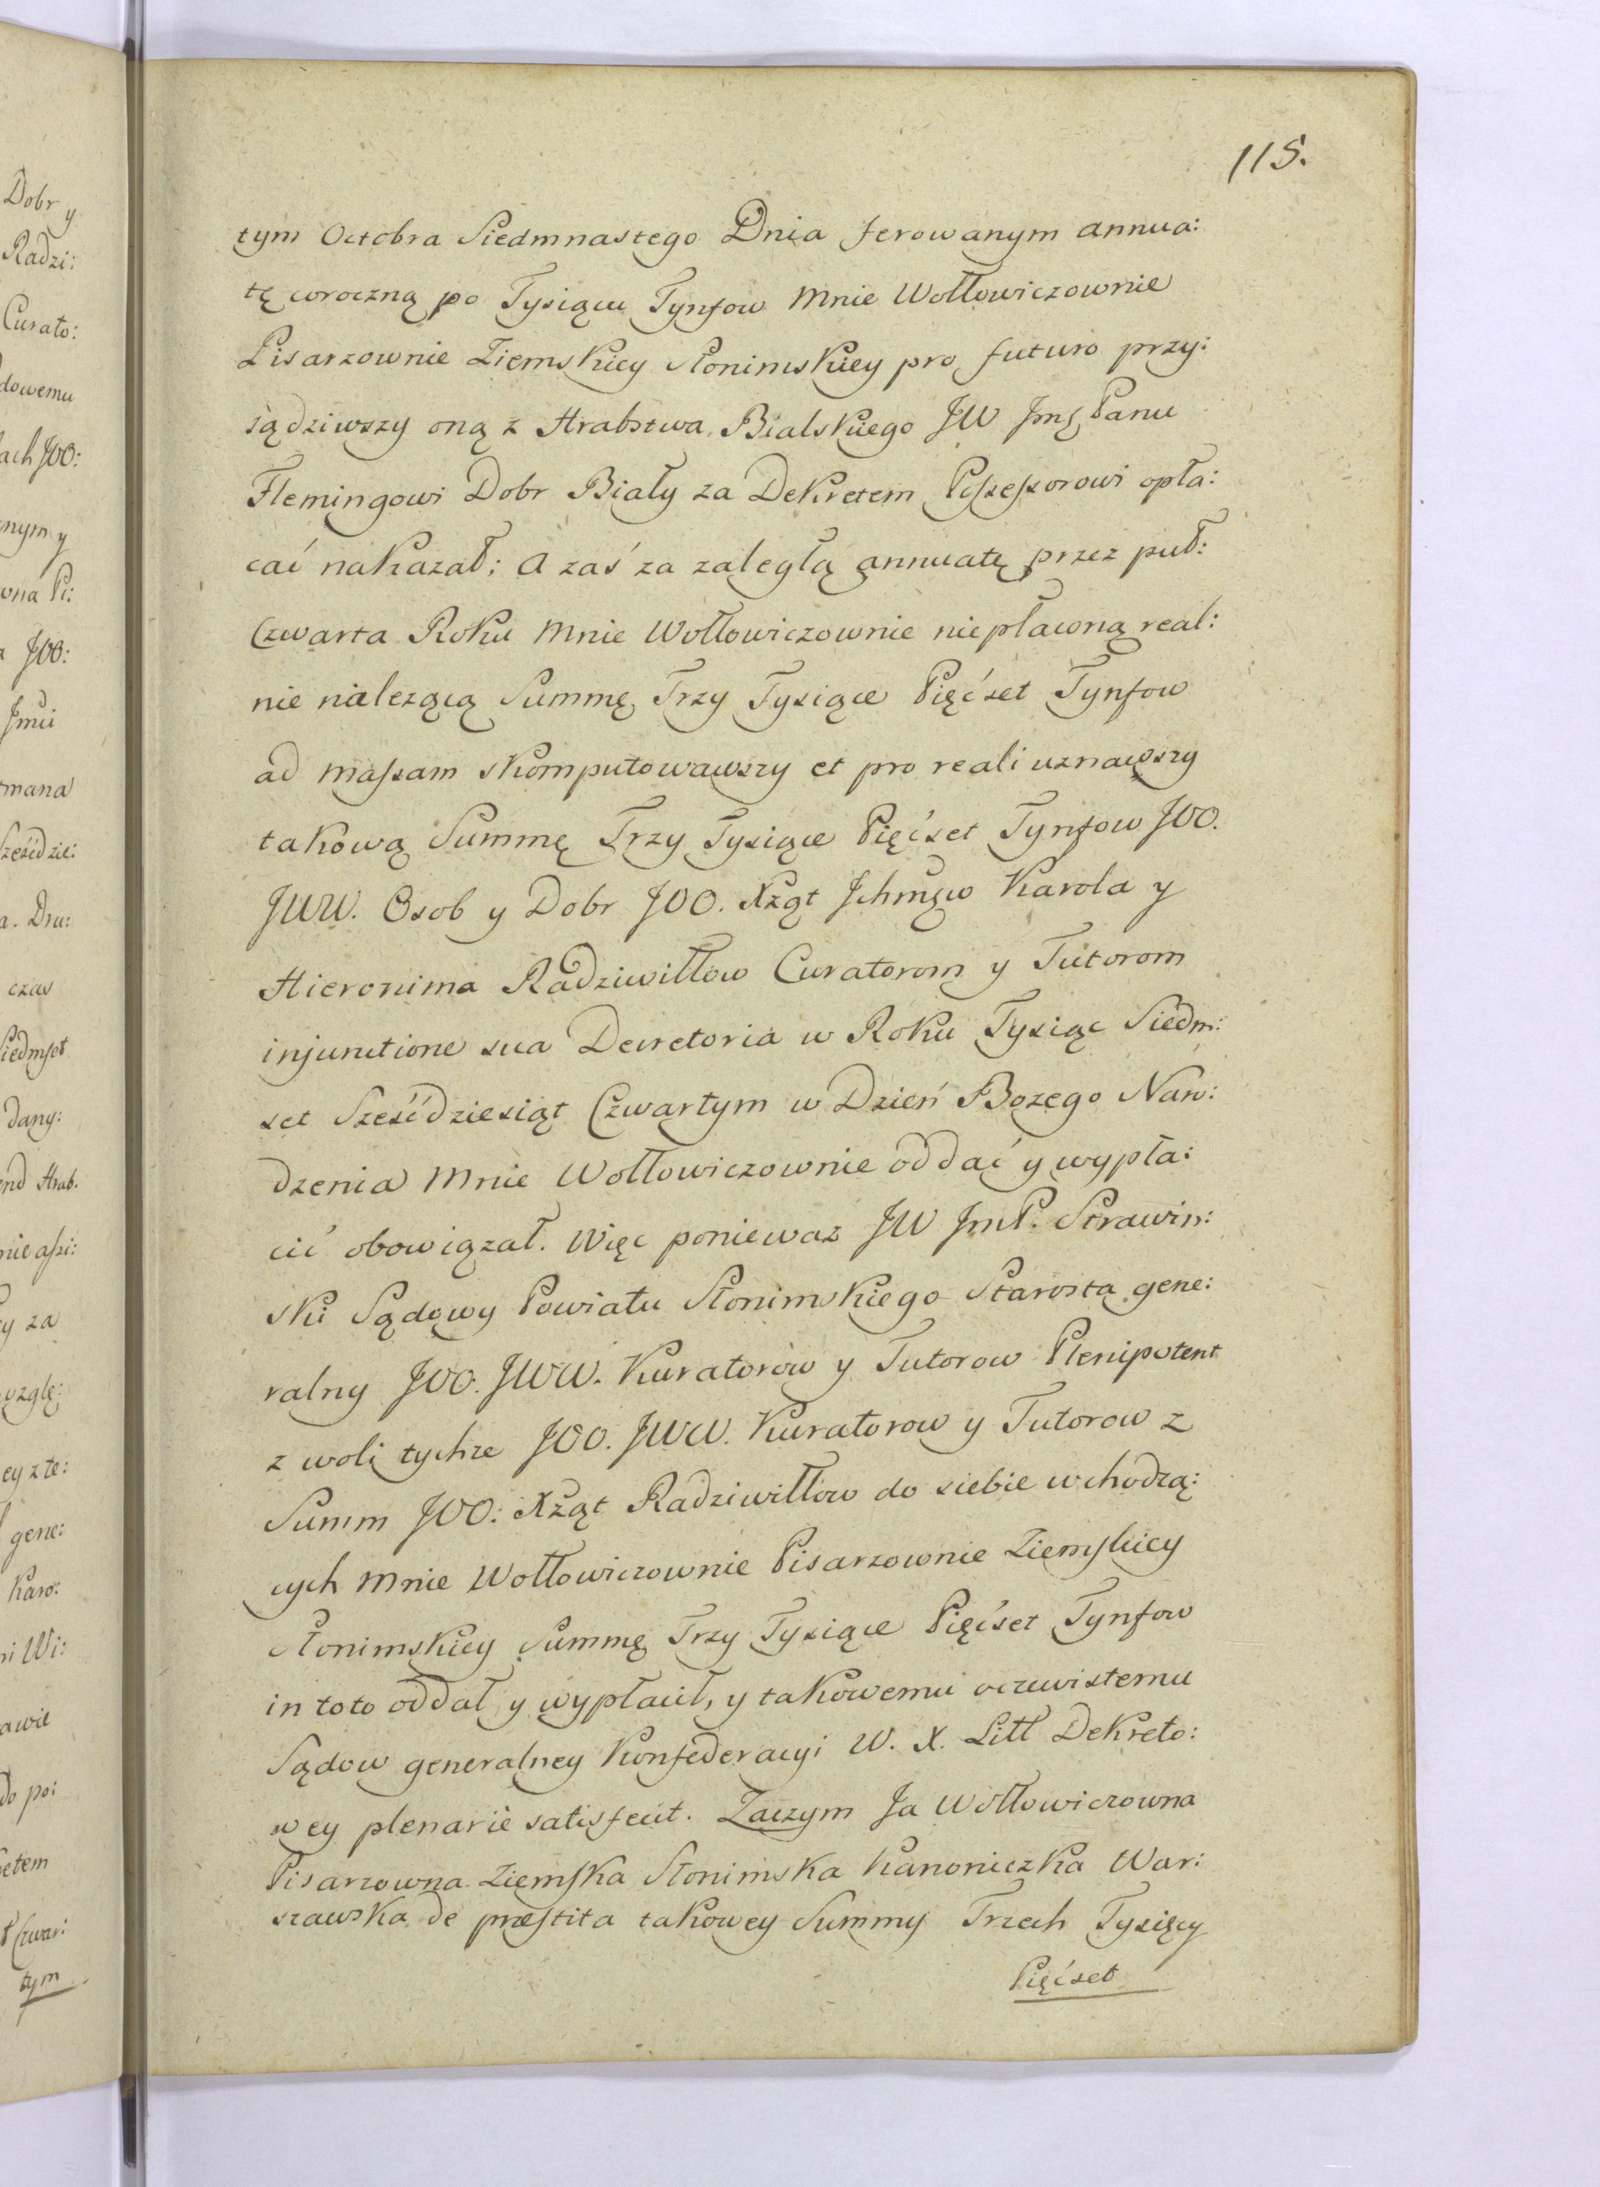 115.
tym Octobra Siedmnastego Dnia ferowanym annua:
tę coroczną po Tysiącu Tynfow Mnie Wołłowiczownie
Pisarzownie Ziemskiey Słonimskiey pro futuro przy:
sądziwszy oną z Hrabstwa Bialskiego JW Jmę Panu
Flemingowi Dobr Biały za Dekretem Possessorowi opła:
cać nakazał; a zaś za zaległą annuatę przez puł:
Czwarta Roku Mnie Wołłowiczownie niepłaconą real:
nie nalezącą Summę Trzy Tysiące Pięćset Tynfow
ad massam skomputowawszy et pro reali uznawszy
takową Summę Trzy Tysiące Pięćset Tynfow JOO.
JWW. Osob y Dobr JOO. Xżąt Jchmęw Karola y
Hieronima Radziwiłłow Curatorom y Tutorom
injunctione sua Decretoria w Roku Tysiąc Siedm:
set Sześćdziesiąt Czwartym w Dzień Bozego Naro:
dzenia Mnie Wołłowiczownie oddać y wypła:
cić obowiązał. Więc poniewaz JW JmP. Strawin:
ski Sądowy Powiatu Słonimskiego Starosta gene:
ralny JOO. JWW. Kuratorow y Tutorow Plenipotent
z woli tychze JOO. JWW. Kuratorow y Tutorow z
Summ JOO: Xżąt Radziwiłłow do siebie wchodzą:
cych Mnie Wołłowiczownie Pisarzownie Ziemskiey
Słonimskiey Summę Trzy Tysiące Pięćset Tynfow
in toto oddał y wypłacił, y takowemu oczewistemu
Sądow generalney Konfederacyi W. X. Litt Dekreto:
wey plenarie satisfecit. Zaczym Ja Wołłowiczowna
Pisarzowna Ziemska Słonimska Kanoniczka War:
szawska de præstita takowey Summy Trzech Tysięcy
Pięćset
Dobr y
Radzi:
Curato:
dowemu
ach JOO:
nym y
wna Pi:
JOO:
Jmci
tmana
Sześćdzie:
a. Dru:
czas
Siedmset
dany:
end Hrab.
nie assi:
y za
wzglę:
ey z te:
gene:
Karo:
ni Wi:
awie
do po:
etem
t Czwar:
tym